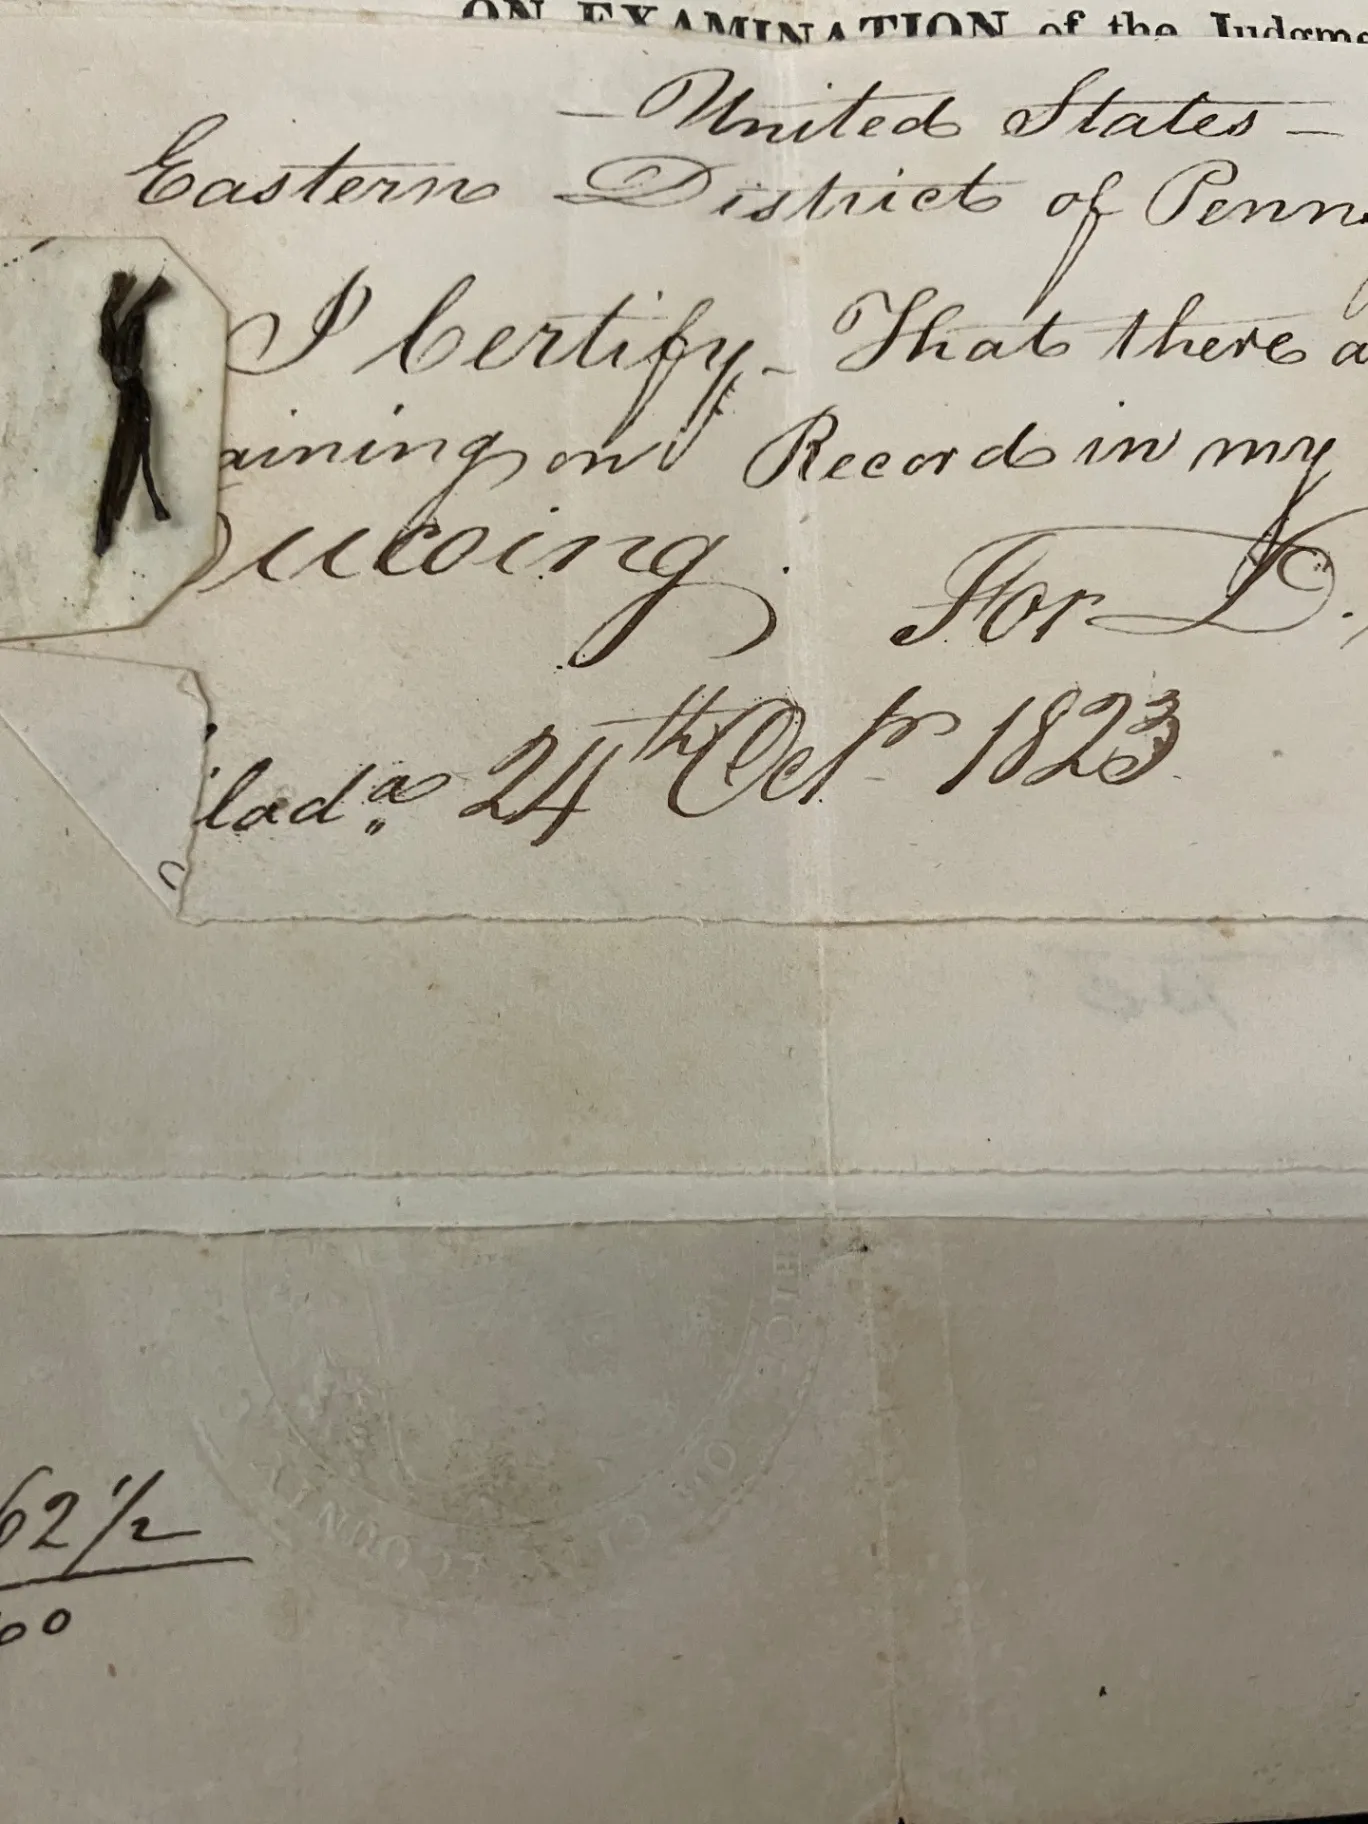 ON EXAMINATION of the Judgme
— United States —
Eastern District of Penn
I Certify – That there a
aining on Record in my
ucoing. For D.
lada. 24th Octr 1823
62 1/2
00
CITY COUNTY